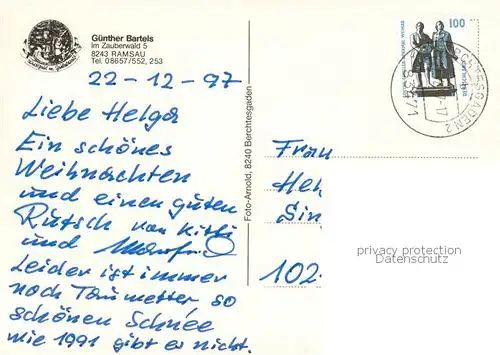 Günther Bartels
Im Zauberwald 5
8243 RAMSAU
Tel. 08657/552, 253
100
22-12-97
Liebe Helga
Ein schönes
Weihnachten
und einen guten
Rutsch von Kitti
und
Leider ist immer
noch Tauwetter so
schönen Schnee
wie 1991 gibt es nicht.
Foto-Arnold, 8240 Berchtesgaden
Frau
Hel
Sin
102
privacy protection
Datenschutz